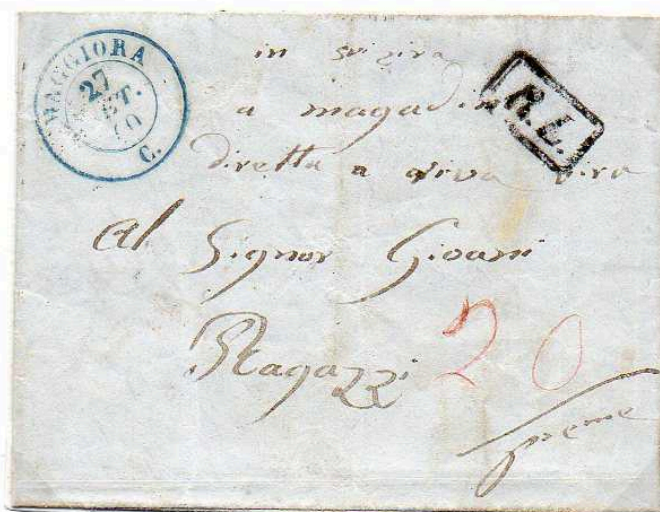 MAGGIORA
27
60
C.
R.L.
in svizira
a magadin
diretta a vira
Al Signor Gioani
Ragazzi
20
preme